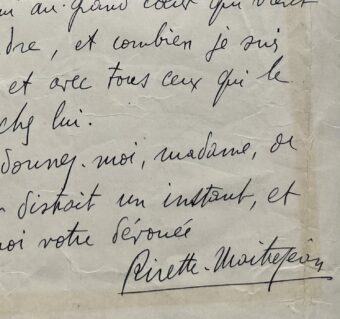 au grand cœur qui vient
dre, et combien je suis
et avec tous ceux qui le
chez lui.
donnez-moi, madame, de
distrait un instant, et
moi votre dévouée
Rirette-Maitrejean